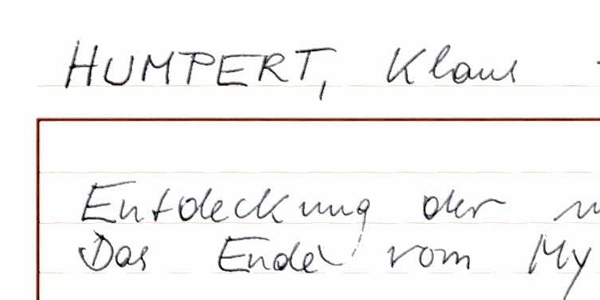 HUMPERT, Klaus
Entdeckung der
Das Ende vom